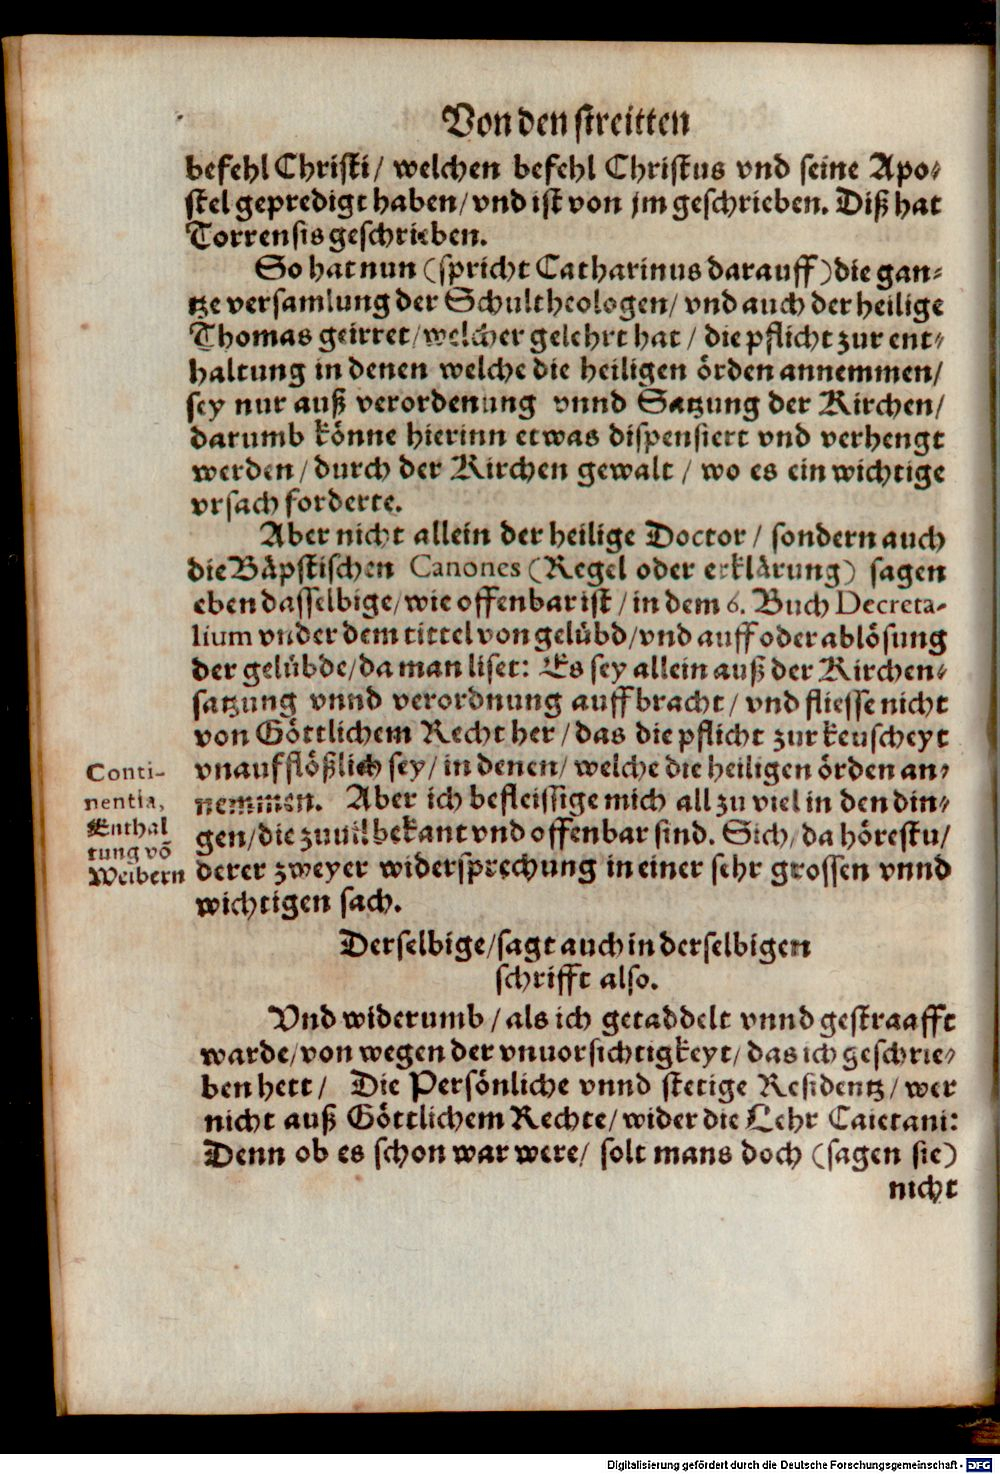 Von den streitten
befehl Christi/ welchen befehl Christus vnd seine Apo-
stel gepredigt haben/ vnd ist von jm geschrieben. Diß hat
Torrensis geschrieben.
So hat nun (spricht Catharinus darauff) die gan-
tze versamlung der Schultheologen/ vnd auch der heilige
Thomas geirret/ welcher gelehrt hat / die pflicht zur ent-
haltung in denen welche die heiligen örden annemmen/
sey nur auß verordenung vnnd Satzung der Kirchen/
darumb könne hierinn etwas dispensiert vnd verhengt
werden / durch der Kirchen gewalt / wo es ein wichtige
vrsach forderte.
Aber nicht allein der heilige Doctor / sondern auch
die Bäpstischen Canones (Regel oder erklärung) sagen
eben dasselbige/ wie offenbar ist / in dem 6. Buch Decreta-
lium vnder dem tittel von gelübd/ vnd auff oder ablösung
der gelübde/ da man liset: Es sey allein auß der Kirchen-
satzung vnnd verordnung auffbracht / vnd fliesse nicht
von Göttlichem Recht her / das die pflicht zur keuscheyt
vnaufflößlich sey/ in denen/ welche die heiligen örden an-
nemmen. Aber ich befleissige mich all zu viel in den din-
gen/ die zuuil bekant vnd offenbar sind. Sich/ da hörestu/
derer zweyer widersprechung in einer sehr grossen vnnd
wichtigen sach.
Conti-
nentia,
Enthal
tung võ
Weibern
Derselbige/ sagt auch in derselbigen
schrifft also.
Vnd widerumb / als ich getaddelt vnnd gestraafft
warde/ von wegen der vnuorsichtigkeyt/ das ich geschrie-
ben hett / Die Persönliche vnnd stetige Residentz/ wer
nicht auß Göttlichem Rechte/ wider die Lehr Caietani:
Denn ob es schon war were/ solt mans doch (sagen sie)
nicht
Digitalisierung gefördert durch die Deutsche Forschungsgemeinschaft - DFG